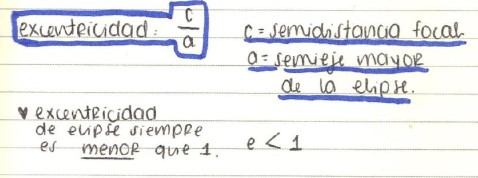 excentricidad: c/a
c = semidistancia focal
a = semieje mayor
de la elipse.
♥ excentricidad
de elipse siempre
es menor que 1. e < 1